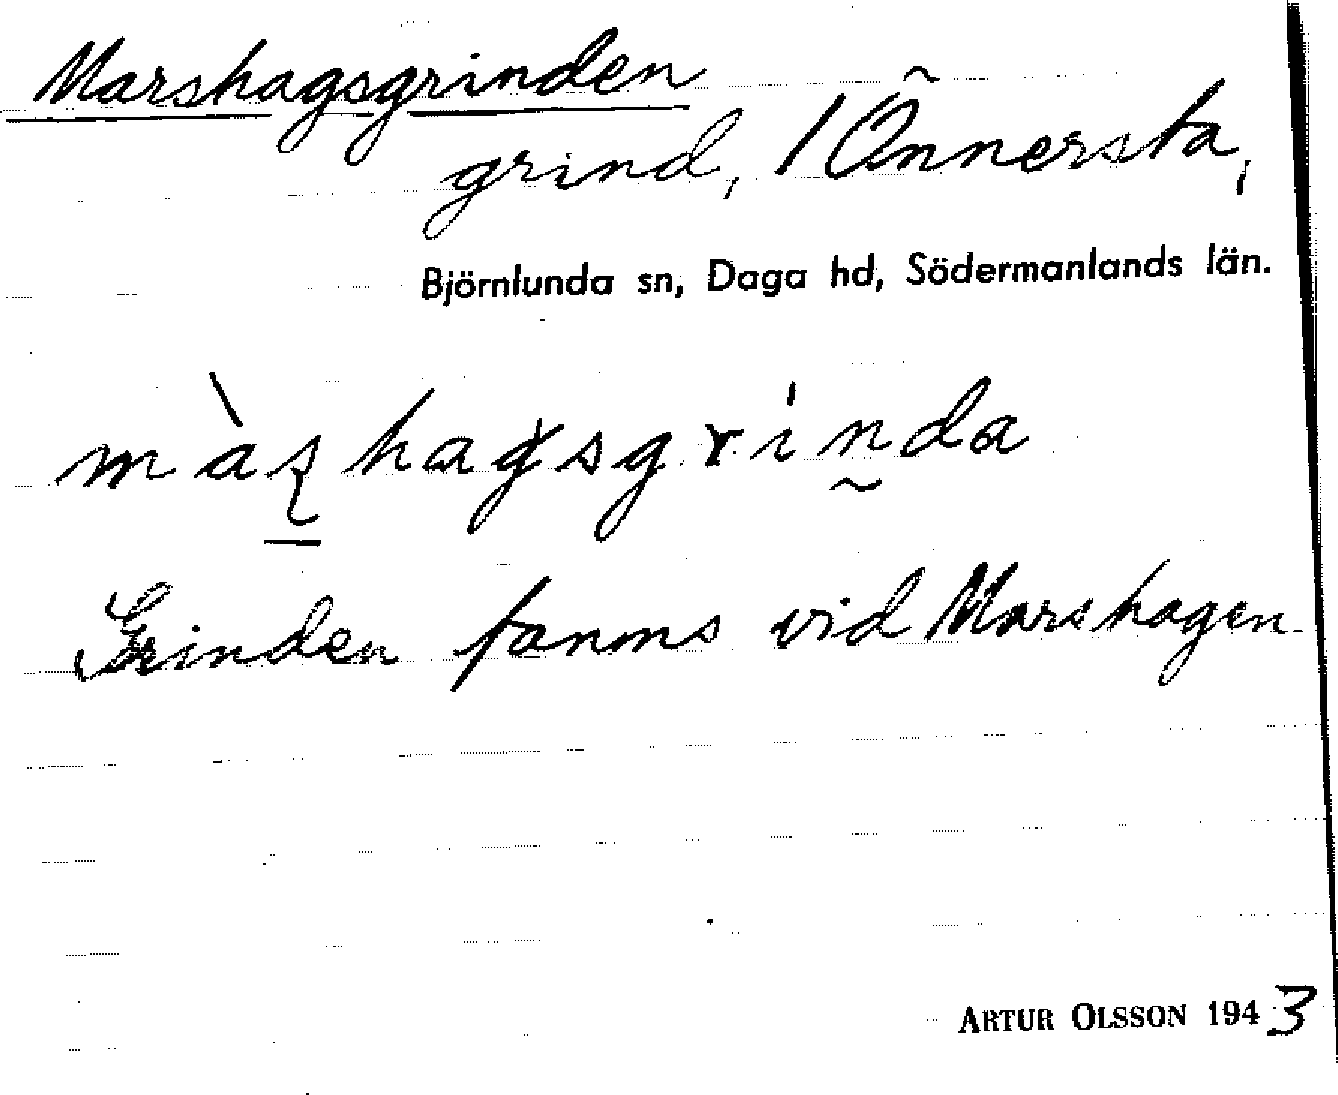 Marshagsgrinden
grind, / Önnersta,
Björnlunda sn, Daga hd, Södermanlands län.
màʂhagsgrinda
Grinden fanns vid Marshagen
ARTUR OLSSON 1943